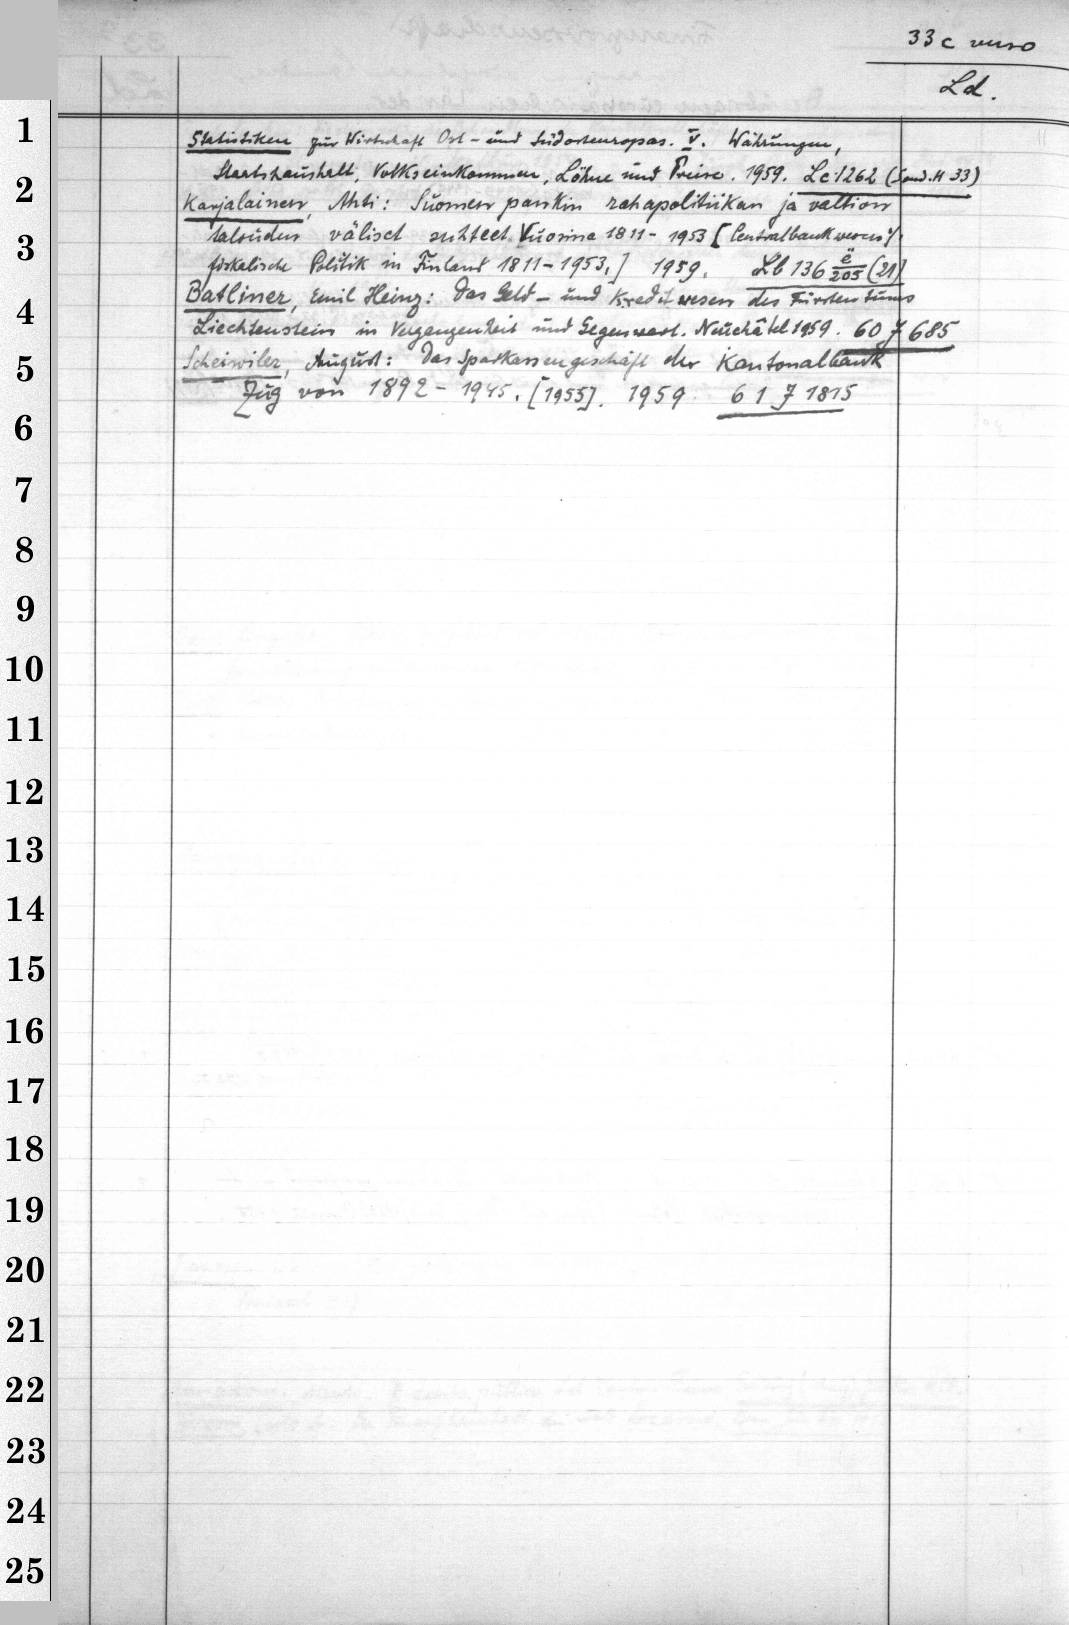 33 c verso
Ld.
1
Statistiken zur Wirtschaft Ost- und Südosteuropas. V. Währungen,
2
Staatshaushalt, Volkseinkommen, Löhne und Preise. 1959. Lc 1262 (Sond. H 33)
Karjalainen, Ahti: Suomen pankin rahapolitiikan ja valtion
3
talouden väliset suhteet Vuosina 1811-1953 [Centralbankwesen u.
fiskalische Politik in Finland 1811-1953.] 1959. Lb 136 ë/205 (21)
4
Batliner, Emil Heinz: Das Geld- und Kreditwesen des Fürstentums
Liechtenstein in Vergangenheit und Gegenwart. Neuchâtel 1959. 60 7 685
5
Scheiwiler, August: Das Sparkassengeschäft der Kantonalbank
Zug von 1892-1945. [1955]. 1959. 61 7 1815
6
7
8
9
10
11
12
13
14
15
16
17
18
19
20
21
22
23
24
25